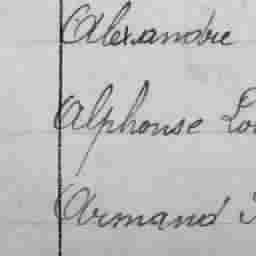 Alexandre
Alphonse
Armand